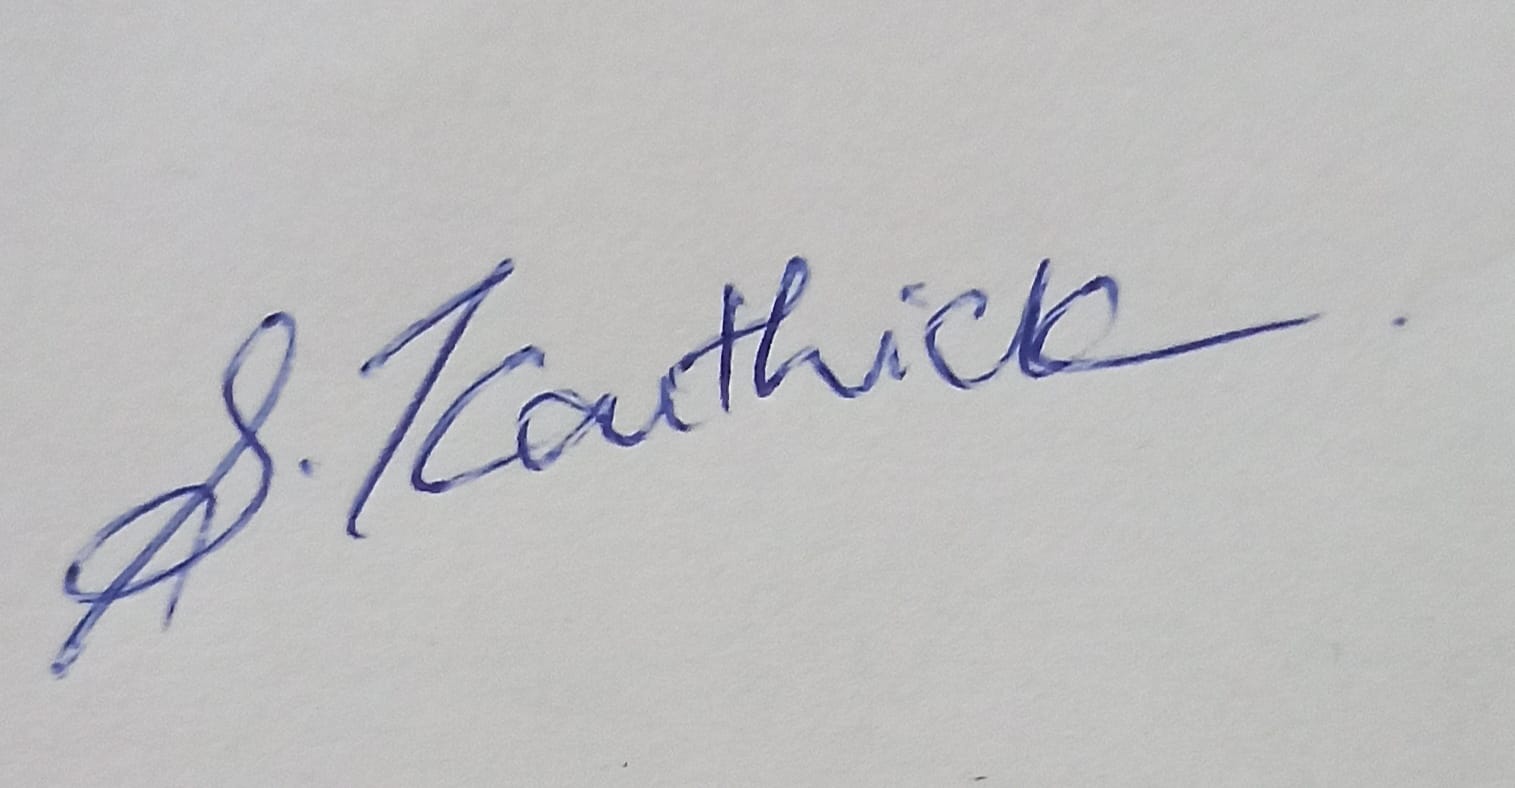 S. Karthick.